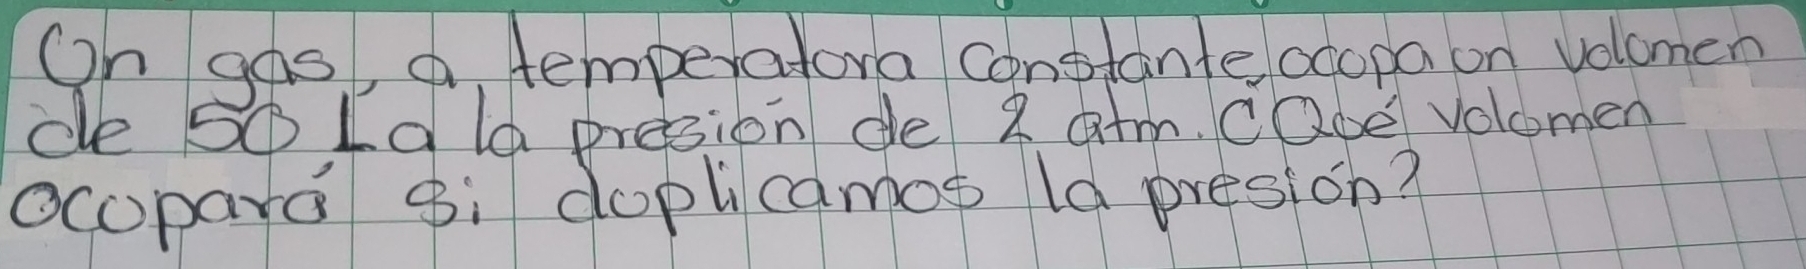 Un gas, a temperatura constante, ocupa un volumen
de 50 L a la presión de 2 atm. ¿Qué volumen
ocupará si duplicamos la presión?